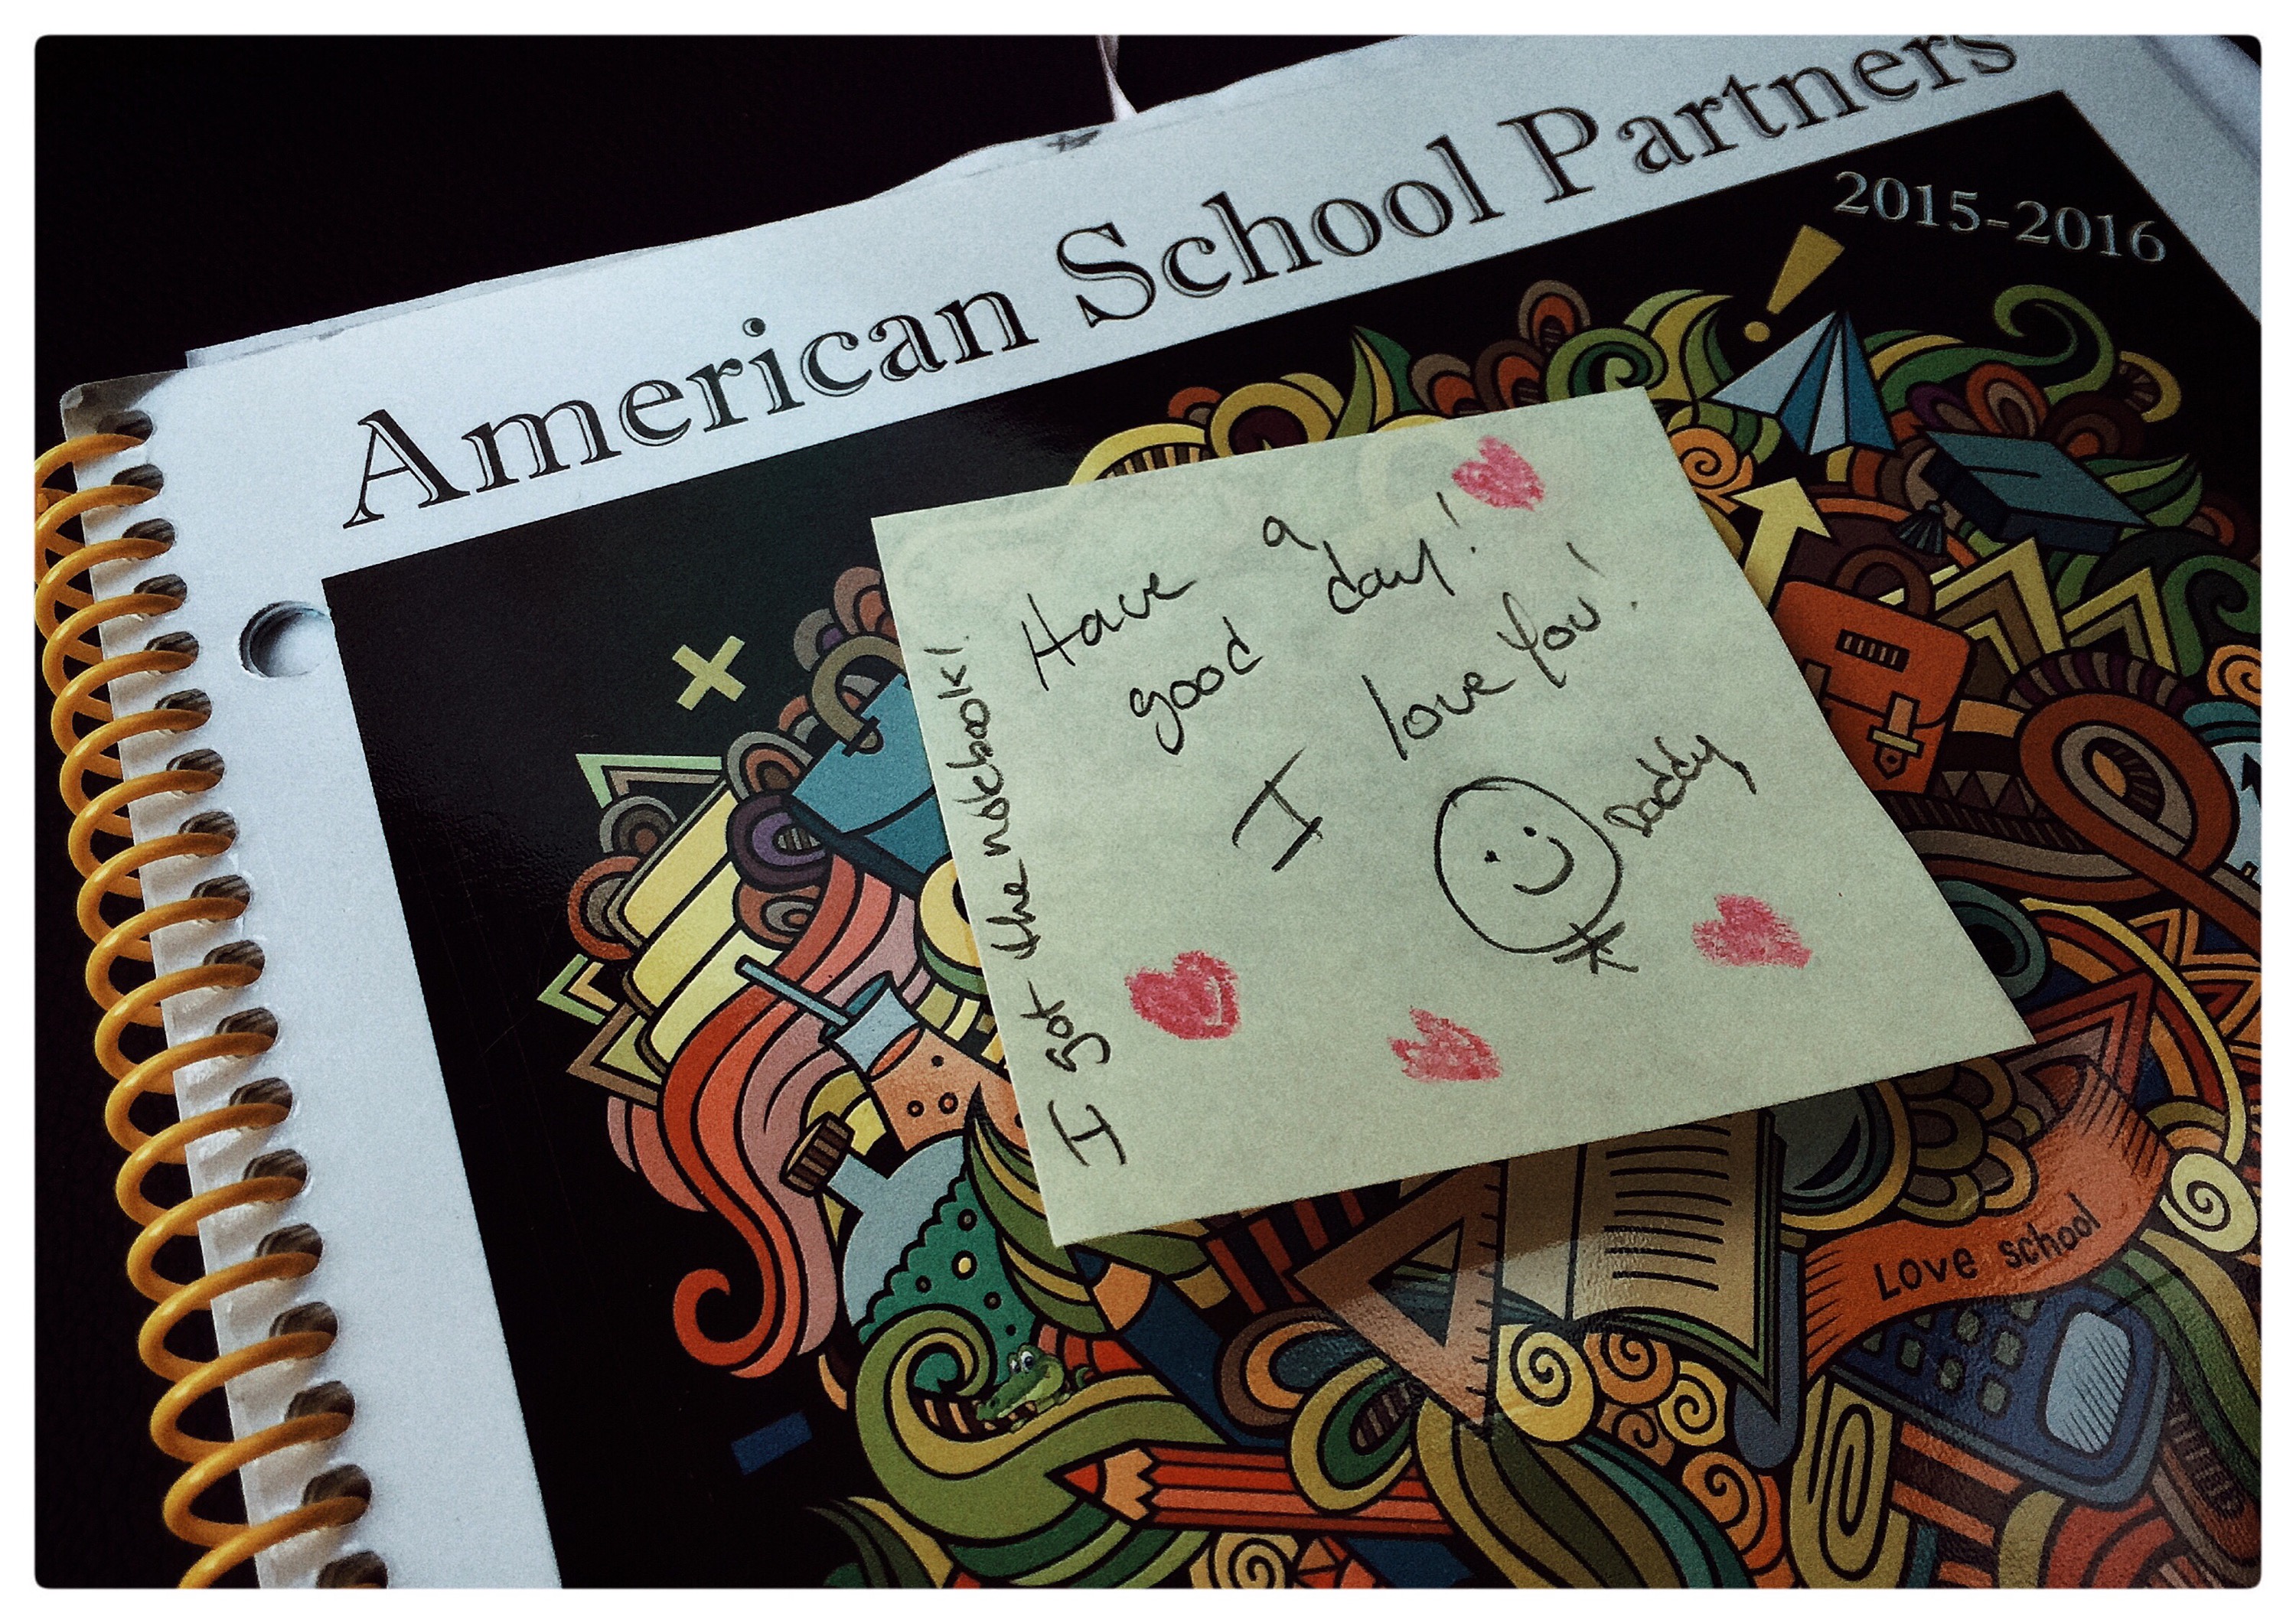 American School Partners
2015-2016
Have a
good day!
I love You!
Daddy
I got the notebook!
Love school